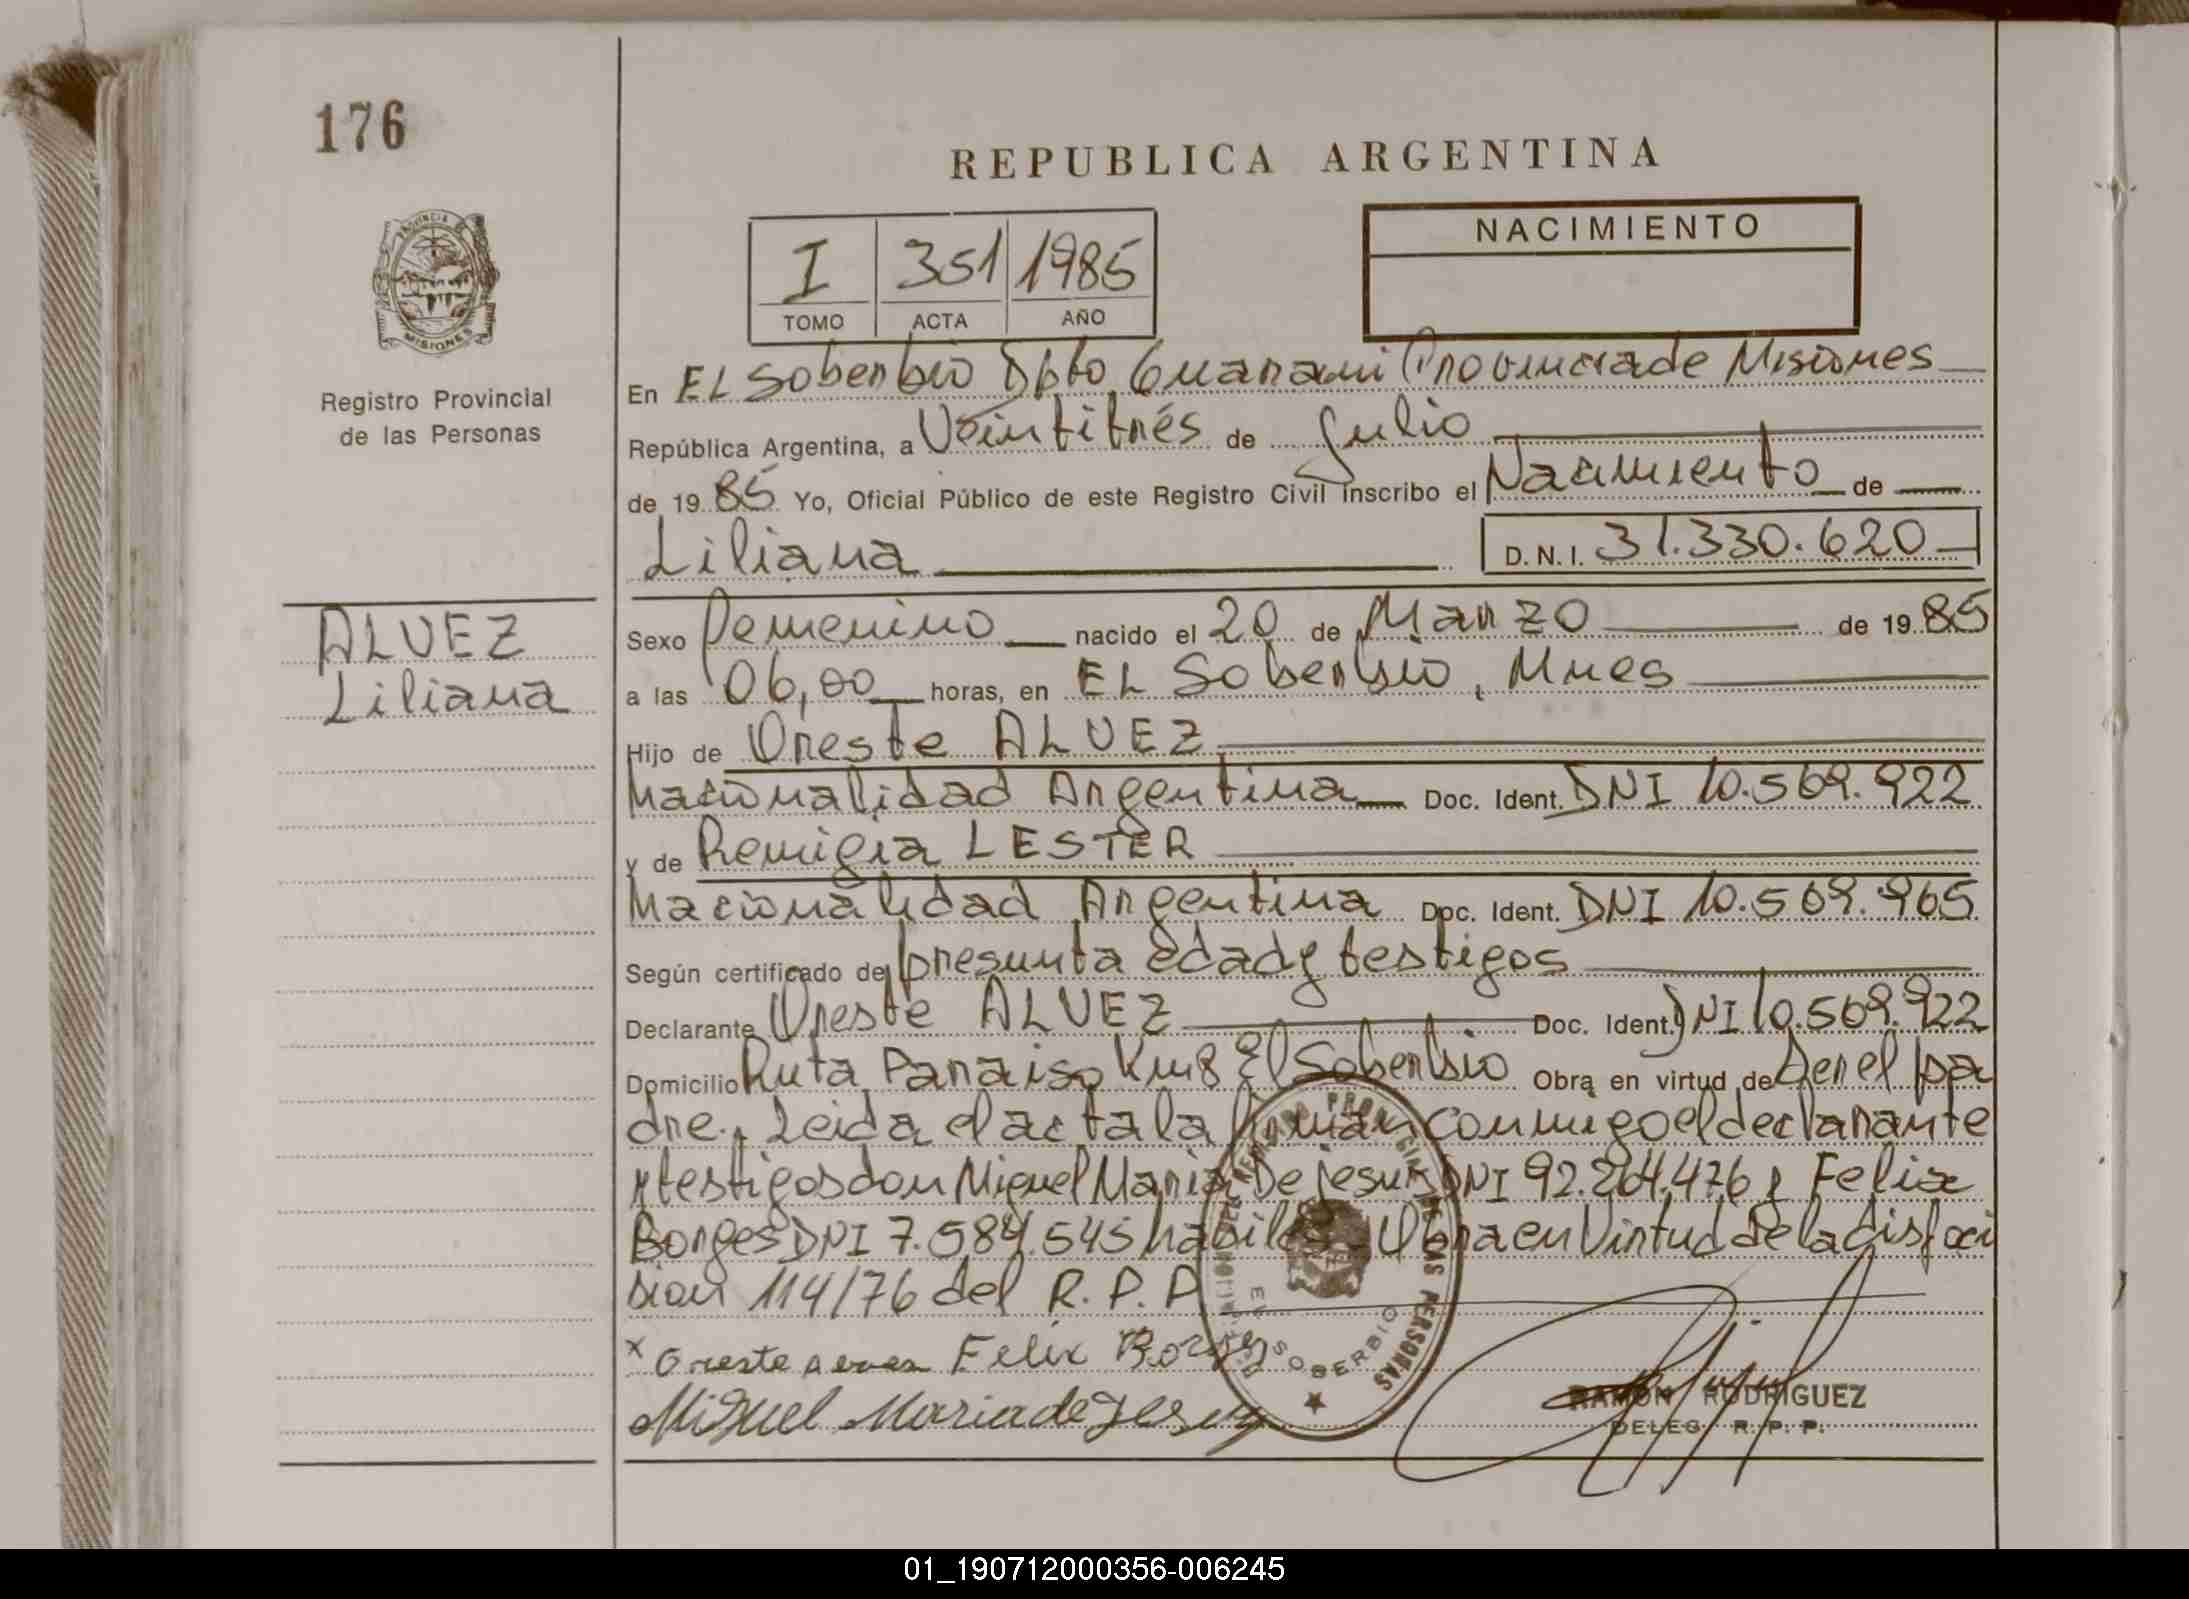 176
REPUBLICA ARGENTINA
PROVINCIA DE
MISIONES
I 351 1985
TOMO ACTA AÑO
NACIMIENTO
Registro Provincial
de las Personas
En EL Soberbio Dpto Guarani Provincia de Misiones
República Argentina, a Veintitrés de Julio
de 1985 Yo, Oficial Público de este Registro Civil inscribo el Nacimiento de
Liliana D.N.I. 31.330.620
ALVEZ
Liliana
Sexo Femenino nacido el 20 de Marzo de 1985
a las 06,00 horas, en EL Soberbio, Mnes
Hijo de Oreste ALVEZ
Nacionalidad Argentina Doc. Ident. DNI 10.569.922
y de Remigia LESTER
Nacionalidad Argentina Doc. Ident. DNI 10.569.965
Según certificado de presunta edad y testigos
Declarante Oreste ALVEZ Doc. Ident. DNI 10.569.922
Domicilio Ruta Paraiso Km 8 El Soberbio Obra en virtud de Ser el pa
dre. Leida el acta la firman conmigo el declarante
y testigos don Miguel Maria De Jesus DNI 92.264.476 y Felix
Borges DNI 7.584.545 habiles Obra en Virtud de la disposi
sion 114/76 del R.P.P
x Oreste Felix Borges
Miguel Maria de Jesus
DE LAS PERSONAS
EL SOBERBIO
RAMON RODRIGUEZ
DELEG. R. P. P.
01_190712000356-006245